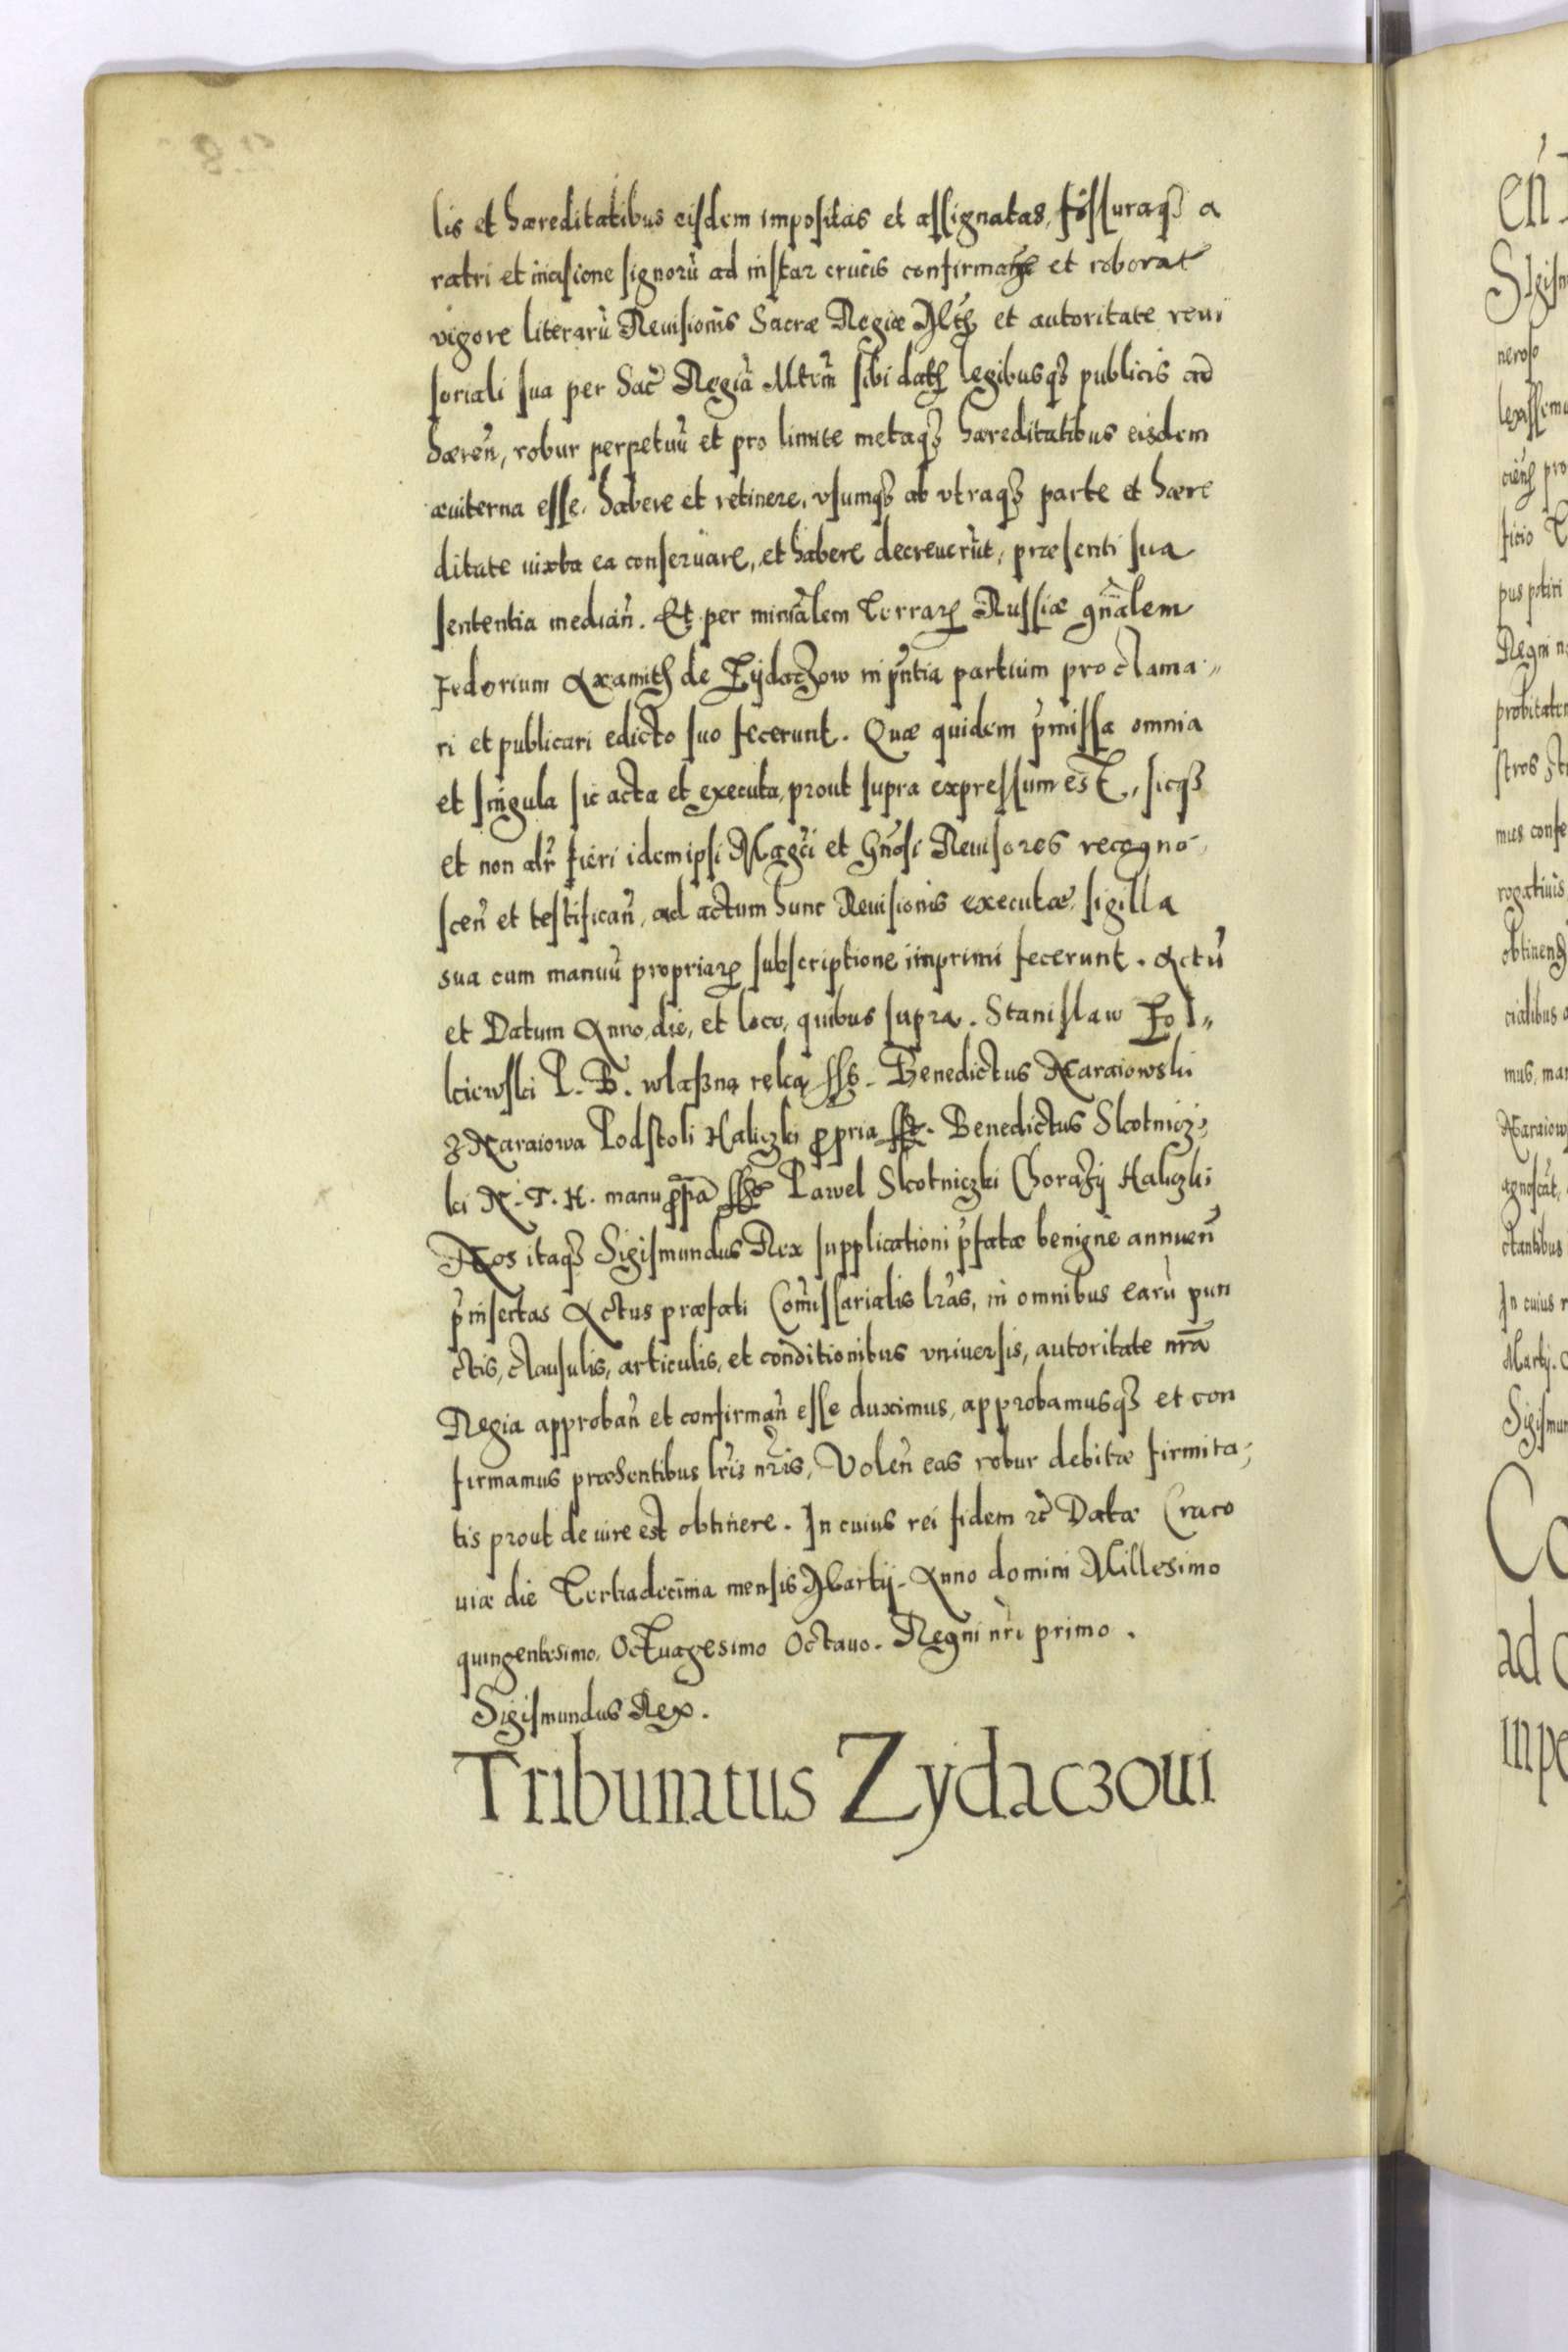 lis et hæreditatibus eisdem impositas et assignatas, fossuraqꝫ a
ratri et incisione signorū ad instar crucis confirmatas et roborat
vigore literarū Reuisionis Sacræ Regiæ Mtis et autoritate reui
soriali sua per Sac̃ Regiā Mtem sibi datis legibusqꝫ publicis ad
hæren̄, robur perpetuū et pro limite metaqꝫ hæreditatibus eisdem
æuiterna esse, habere et retinere, vsumqꝫ ab vtraqꝫ parte et hære
ditate iuxta ea conseruare, et habere decreuerūt, præsenti sua
sententia median̄. Et per minr̃alem Terrarꝝ Russiæ gnãlem
Fedorium Axamith de Zÿdaczow in pñtia partium proclama„
ri et publicari edicto suo fecerunt. Quæ quidem p̃missa omnia
et singula sic acta et executa, prout supra expressum est, sicqꝫ
et non alr̃ fieri idem ipsi Mag̃ci et Gñosi Reuisores recogno„
scen̄ et testifican̄, ad actum hunc Reuisionis executæ, sigilla
sua cum manuū propriarꝝ subscriptione imprimi fecerunt. Actū
et Datum Anno, die, et loco, quibus supra. Stanislaw Zol„
kiewski P. B. wlaßną ręką ssb. Benedictus Naraiowski
z Naraiowa Podstoli Haliczki ꝓpria sst. Benedictus Skotnicz„
ki N. T. H. manu ꝓpã sst Pawel Skotniczki Chorąży Haliczki
Nos itaqꝫ Sigismundus Rex supplicationi p̃fatæ benigne annuen̄
p̃insertas Actus præfati Com̃issarialis lr̃as, in omnibus earū pun
ctis, clausulis, articulis, et conditionibus vniuersis, autoritate nr̃a
Regia approban̄ et confirman̄ esse duximus, approbamusqꝫ et con
firmamus præsentibus lr̃is nr̃is, Volen̄ eas robur debitæ firmita„
tis prout de iure est obtinere. In cuius rei fidem ꝛc̃ Datæ Craco
uiæ die Tertiadecima mensis Martij. Anno domini Millesimo
quingentesimo, Octuagesimo Octauo. Regni nr̃i primo.
Sigismundus Rex.
Tribunatus Zydaczoui